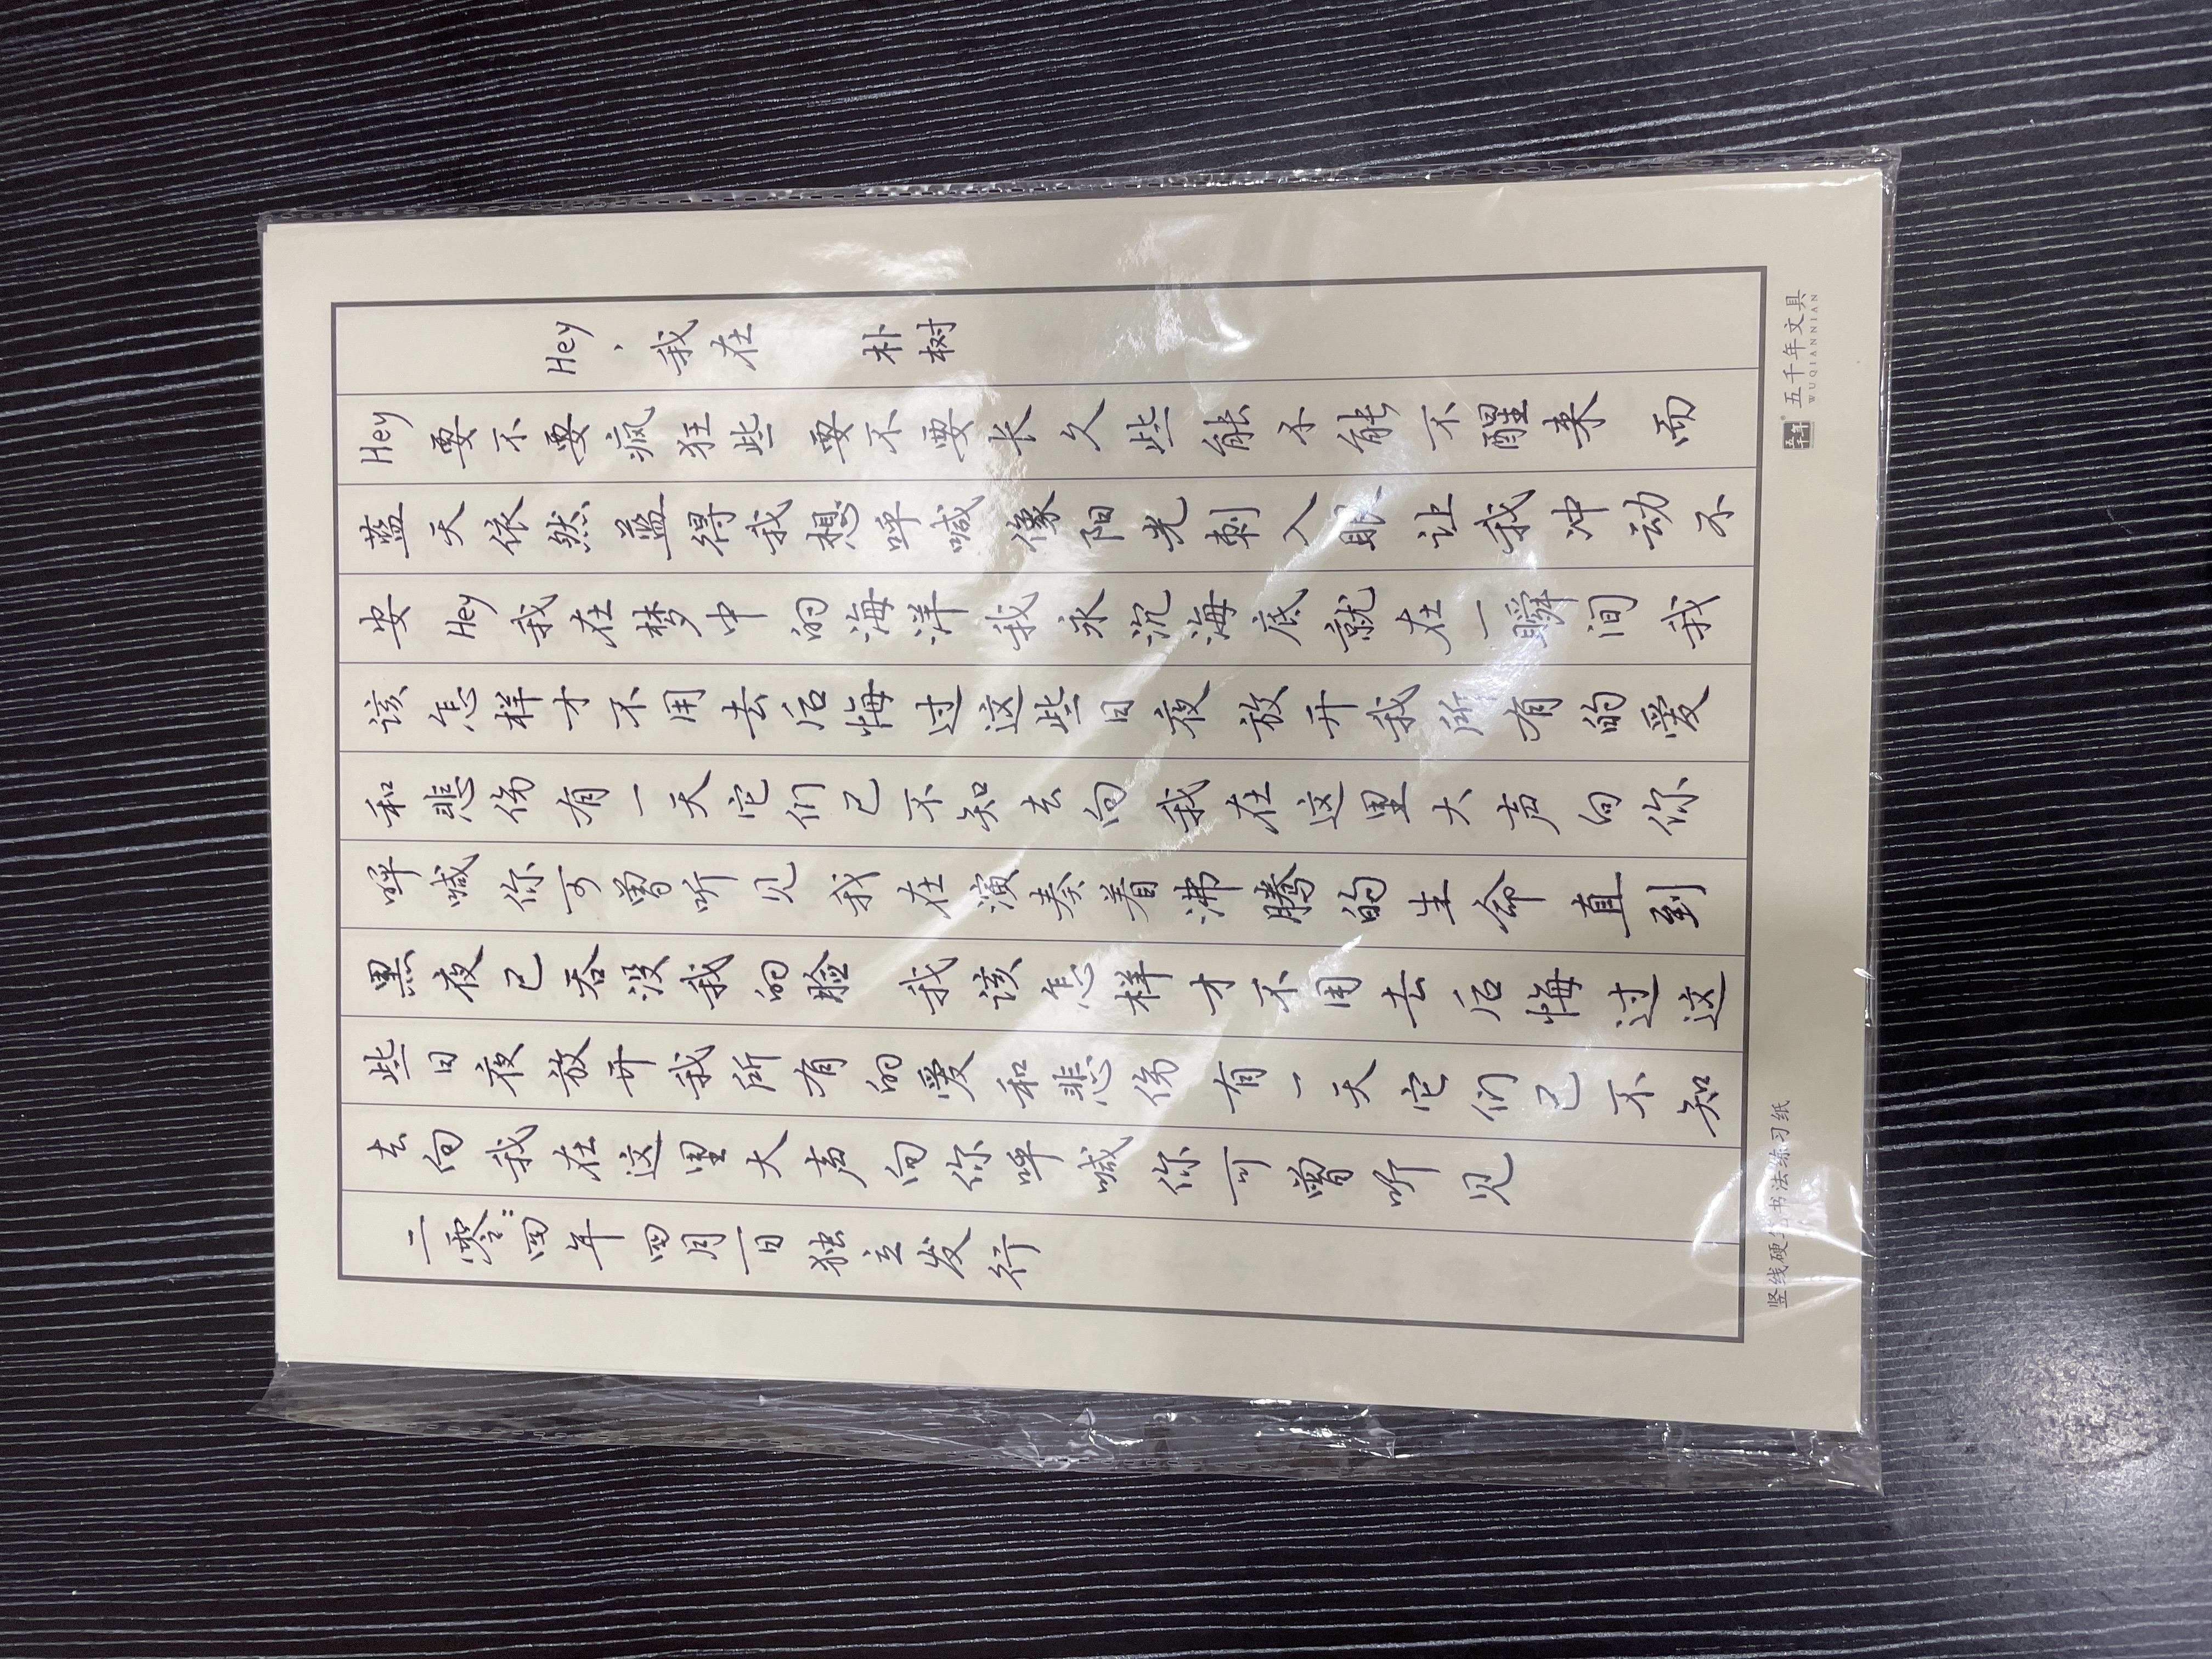 Hey，我在 朴树
Hey 要不要疯狂些 要不要长久些 能不能不醒来 而
蓝天依然蓝得我想呼喊 像阳光刺入眼 让我冲动不
安 Hey 我在梦中的海洋 我永沉海底 就在一瞬间 我
该怎样才不用去后悔过这些日夜 放开我所有的爱
和悲伤有一天它们已不知去向 我在这里大声向你
呼喊你可曾听见 我在演奏着沸腾的生命直到
黑夜已吞没我的脸 我该怎样才不用去后悔过这
些日夜放开我所有的爱和悲伤 有一天它们已不知
去向我在这里大声向你呼喊你可曾听见
二零二四年四月一日独立发行
竖线硬笔书法练习纸
五千年 五千年文具
WUQIANNIAN